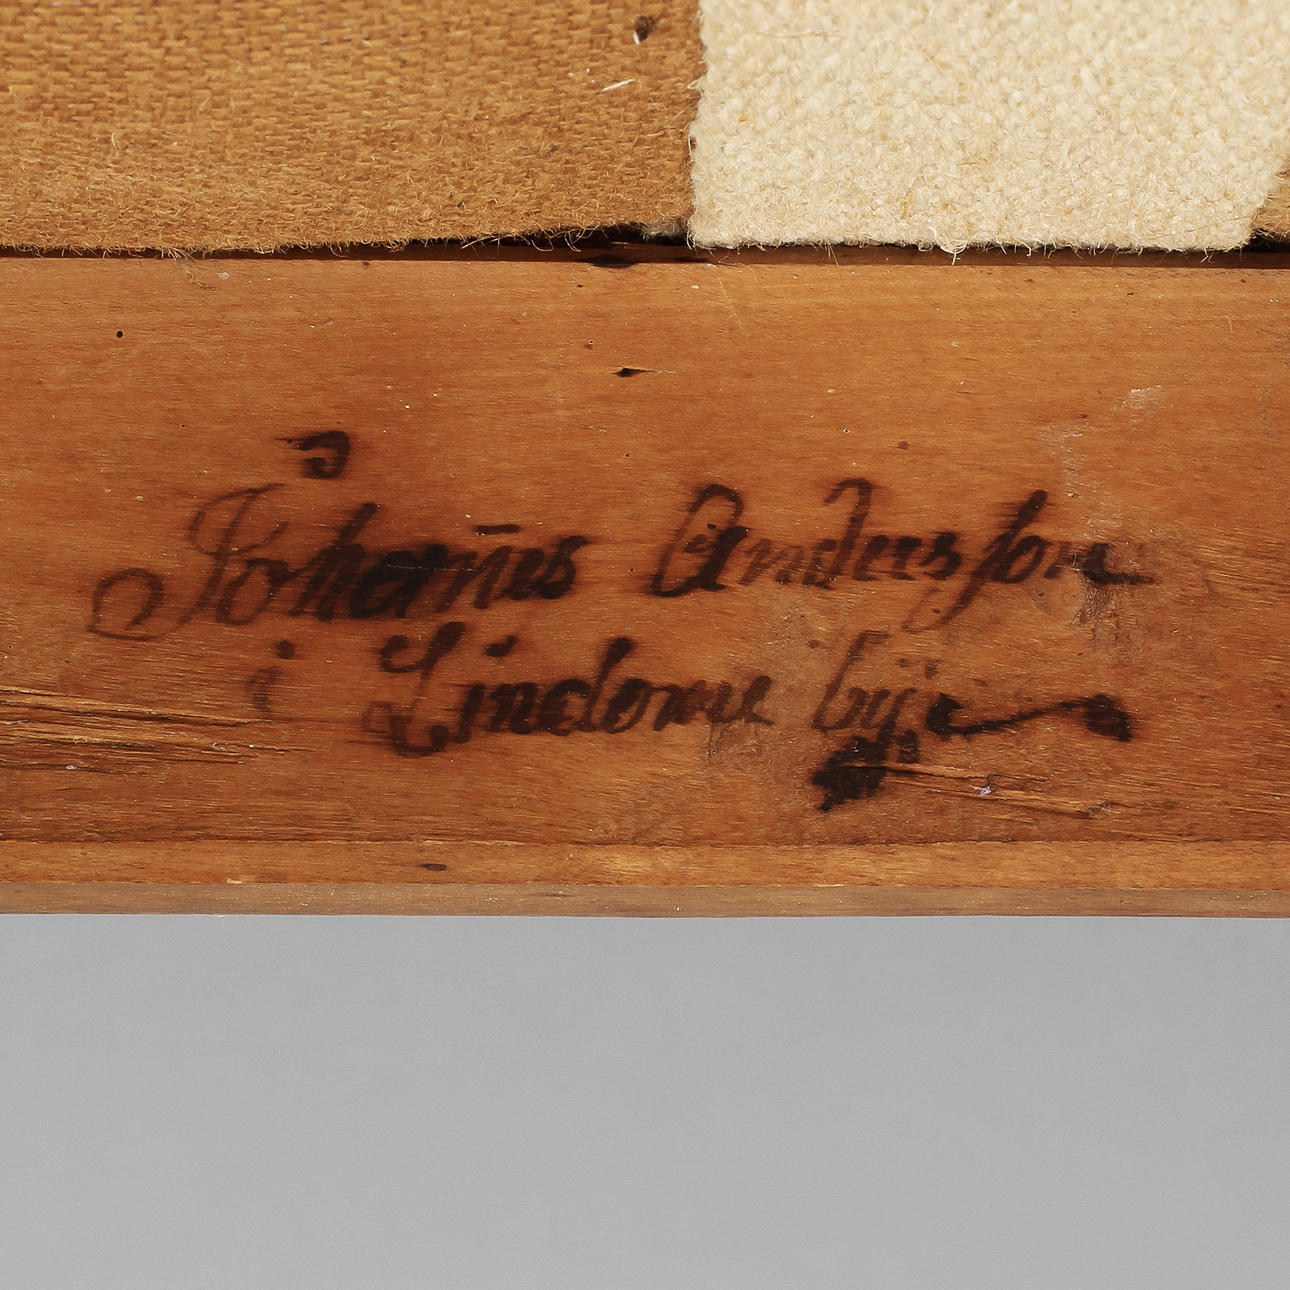 Johan̄es Andersson
i Lindome by